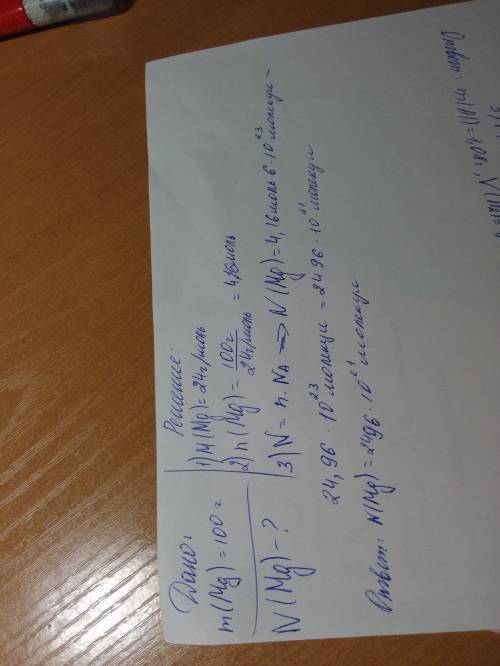 Дано:
m(Mg)=100 г
N(Mg)-?
Решение:
1) M(Mg)=24 г/моль
2) n(Mg) = 100 г / 24 г/моль = 4,16 моль
3) N = n · NA => N(Mg)=4,16 моль · 6 · 10²³ молекул =
24,96 · 10²³ молекул = 2496 · 10²¹ молекул
Ответ: N(Mg)=2496 · 10²¹ молекул